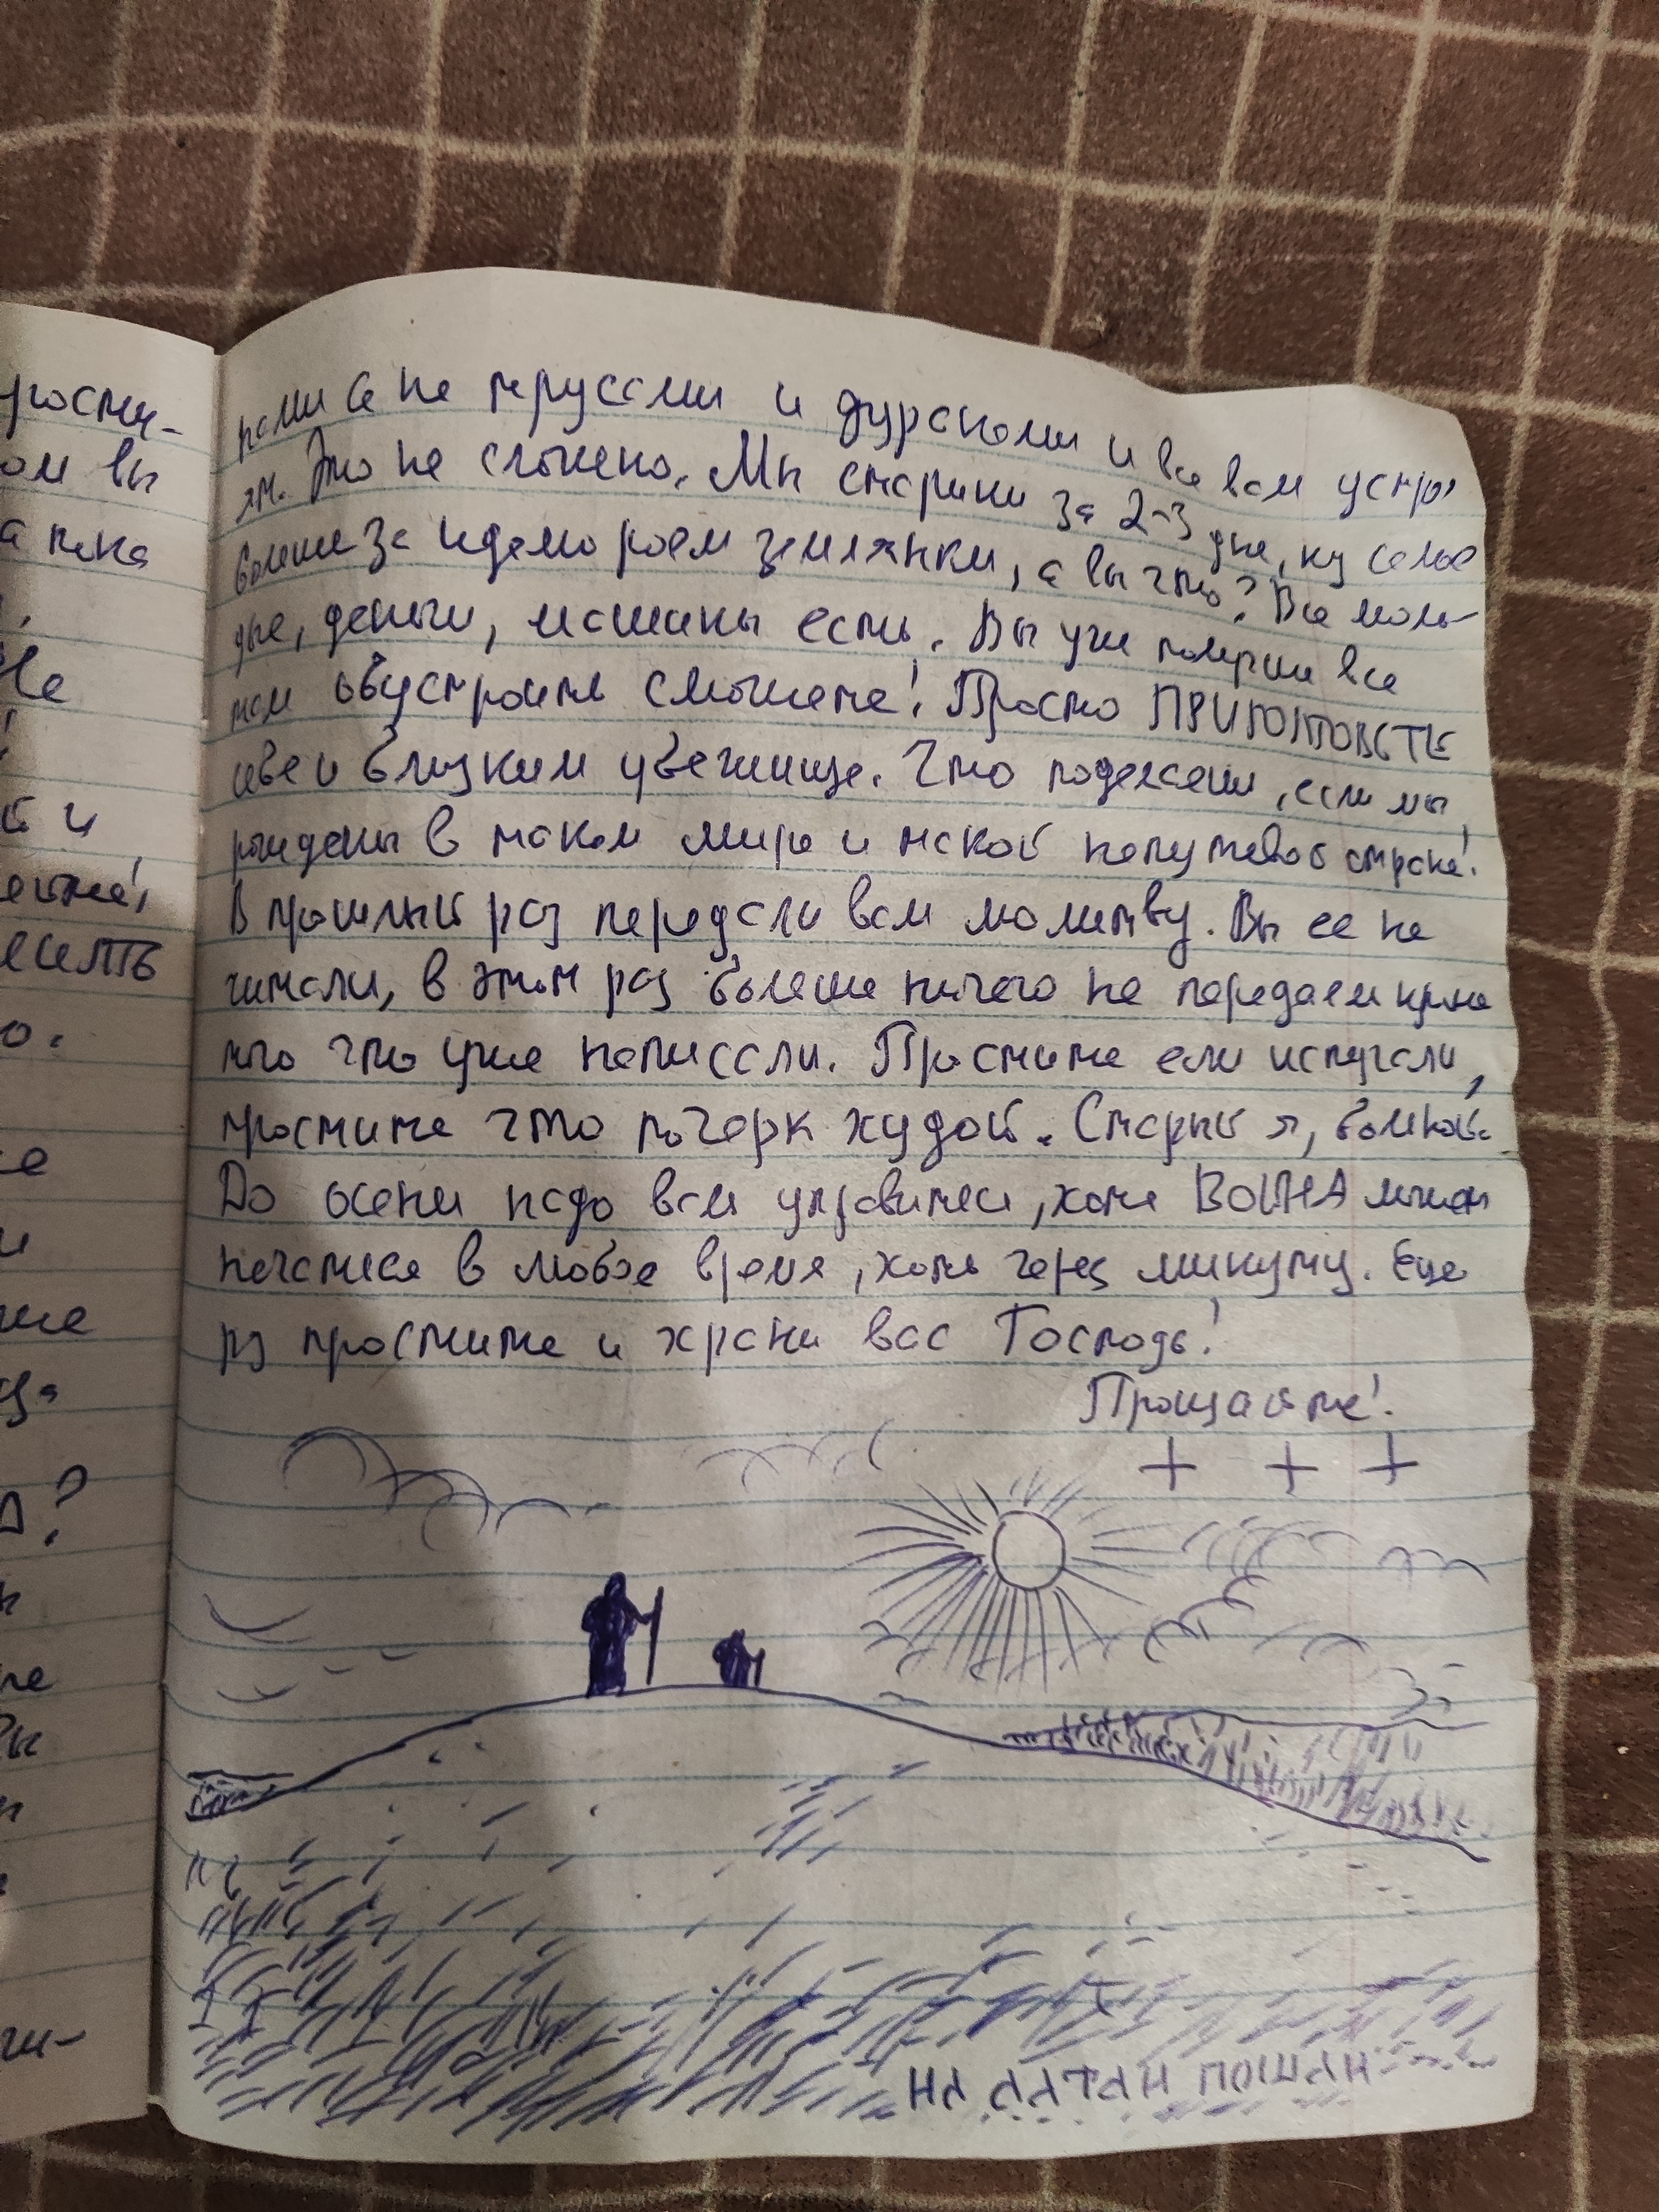 ростп-
ом вы
а пока
Не
й и
о.
рами а не трусами и дураками и все вам устро
ят. Это не сложно. Мы старики за 2-3 дня, ну самое
большее за неделю роем землянки, а вы что? Все моло-
дые, деньги, машины есть. Вы уж поверти все
там обустроить сможете! Просто ПРИГОТОВЬТЕ
себе и близким убежище. Что поделаеш, если мы
рождены в таком мире и такой непутевой стране!
В прошлый раз передали вам молитву. Вы ее не
читали, в этот раз больше ничего не передаем кроме
того что уже написали. Простите если испугали,
простите что почерк худой. Старый я, больной.
До осени надо вам управится, хотя ВОЙНА может
начатся в любое время, хоть через минуту. Еще
рз простите и храни вас Господь!
Прощайте!
+ + +